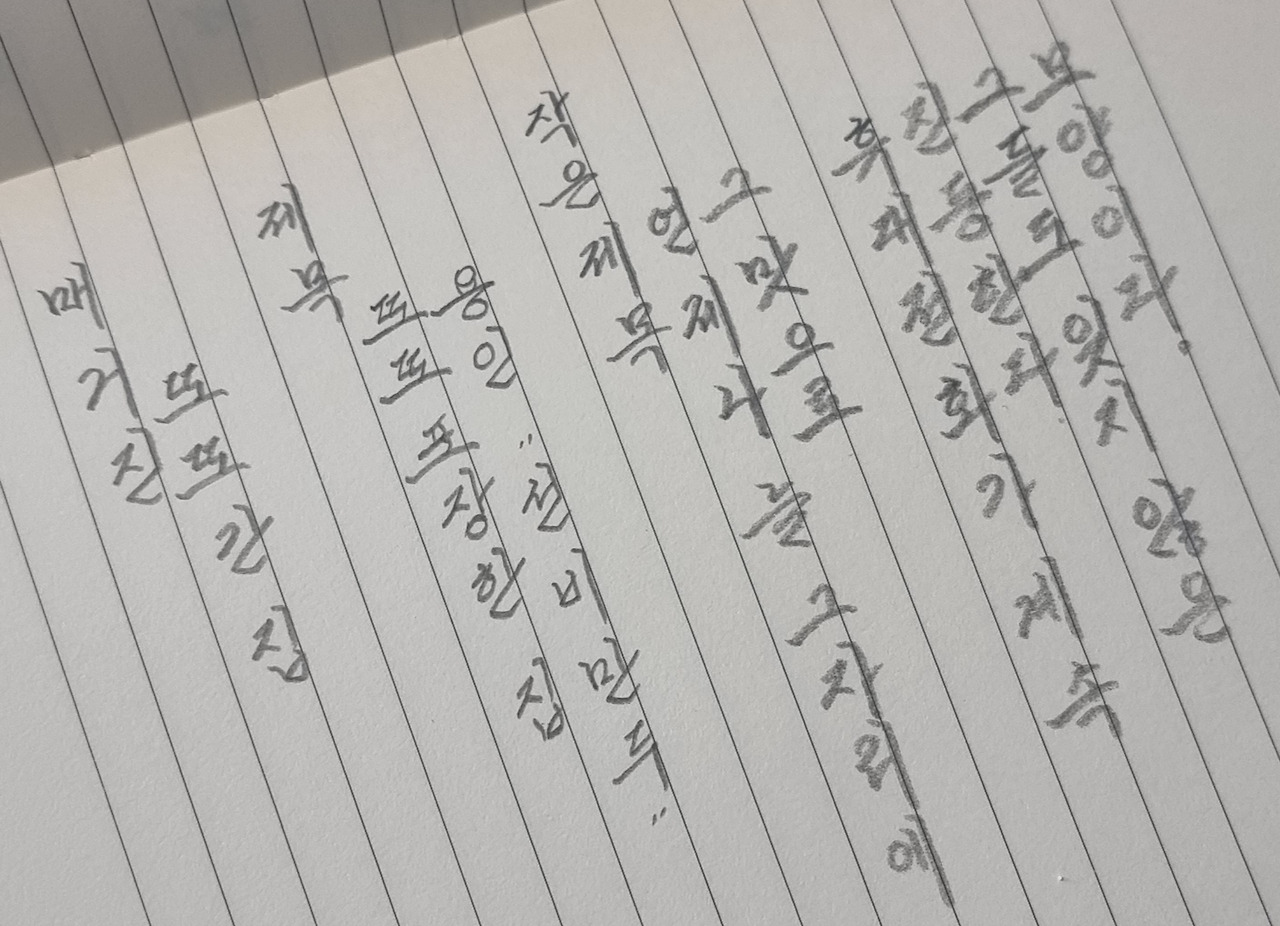 매거진
또또간집
제목
또또포장한 집
용인 "선비만두"
작은제목
언제나 늘 그자리에
그맛으로
휴대전화가 계속
진동한다.
그들도 잊지 않은
모양이다.